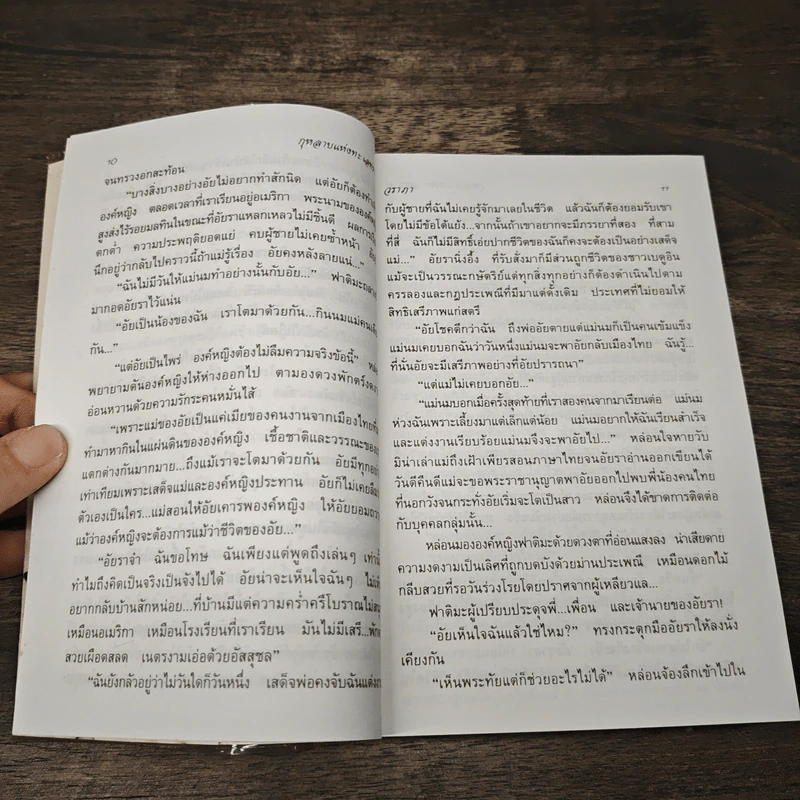 ๑๐
กุหลาบแห่งทะเลทราย
จนทรวงอกสะท้อน
“บางสิ่งบางอย่างอัยไม่อยากทำสักนิด แต่อัยก็ต้องทำ
องค์หญิง ตลอดเวลาที่เราเรียนอยู่อเมริกา พระนามขององค์
สูงส่งไร้รอยมลทินในขณะที่อัยราแหลกเหลวไม่มีชิ้นดี ผลการ
ตกต่ำ ความประพฤติยอดแย่ คบผู้ชายไม่เคยซ้ำหน้า
นึกอยู่ว่ากลับไปคราวนี้ถ้าแม่รู้เรื่อง อัยคงหลังลายแน่...”
“ฉันไม่มีวันให้แม่นมทำอย่างนั้นกับอัย...” ฟาติมะ
มากอดอัยราไว้แน่น
“อัยเป็นน้องของฉัน เราโตมาด้วยกัน...กินนมแม่คน
กัน...”
“แต่อัยเป็นไพร่ องค์หญิงต้องไม่ลืมความจริงข้อนี้”
พยายามดันองค์หญิงให้ห่างออกไป ตามองดวงพักตร์
อ่อนหวานด้วยความรักระคนหมั่นไส้
“เพราะแม่ของอัยเป็นแค่เมียของคนงานจากเมืองไทย
ทำมาหากินในแผ่นดินขององค์หญิง เชื้อชาติและวรรณะของ
แตกต่างกันมากมาย...ถึงแม้เราจะโตมาด้วยกัน อัยมีทุกอย่าง
เท่าเทียมเพราะเสด็จแม่และองค์หญิงประทาน อัยก็ไม่เคยลืม
ตัวเองเป็นใคร...แม่สอนให้อัยเคารพองค์หญิง ให้อัยยอม
แม้ว่าองค์หญิงจะต้องการแม้ว่าชีวิตของอัย...”
“อัยราจ๋า ฉันขอโทษ ฉันเพียงแต่พูดถึงเล่นๆ เท่านั้น
ทำไมถึงคิดเป็นจริงเป็นจังไปได้ อัยน่าจะเห็นใจฉันๆ
อยากกลับบ้านสักหน่อย...ที่บ้านมีแต่ความคร่ำครึโบราณ
เหมือนอเมริกา เหมือนโรงเรียนที่เราเรียน มันไม่มีเสรี...”
สวยเผือดสลด เนตรงามเอ่อด้วยอัสสุชล
“ฉันยังกลัวอยู่ว่าไม่วันใดก็วันหนึ่ง เสด็จพ่อคงจับฉันแต่งงาน
วราภา
๑๑
กับผู้ชายที่ฉันไม่เคยรู้จักมาเลยในชีวิต แล้วฉันก็ต้องยอมรับเขา
โดยไม่มีข้อโต้แย้ง...จากนั้นถ้าเขาอยากจะมีภรรยาที่สอง ที่สาม
ที่สี่ ฉันก็ไม่มีสิทธิ์เอ่ยปากชีวิตของฉันก็คงจะต้องเป็นอย่างเสด็จ
แม่...” อัยรานิ่งอึ้ง ที่รับสั่งมาก็มีส่วนถูกชีวิตของชาวเบดูอิน
แม้จะเป็นวรรณะกษัตริย์แต่ทุกสิ่งทุกอย่างก็ต้องดำเนินไปตาม
ครรลองและกฎประเพณีที่มีมาแต่ดั้งเดิม ประเทศที่ไม่ยอมให้
สิทธิเสรีภาพแก่สตรี
“อัยโชคดีกว่าฉัน ถึงพ่ออัยตายแต่แม่นมก็เป็นคนเข้มแข็ง
แม่นมเคยบอกฉันว่าวันหนึ่งแม่นมจะพาอัยกลับเมืองไทย ฉันรู้...
ที่นั่นอัยจะมีเสรีภาพอย่างที่อัยปรารถนา”
“แต่แม่ไม่เคยบอกอัย...”
“แม่นมบอกเมื่อครั้งสุดท้ายที่เราสองคนจากมาเรียนต่อ แม่นม
ห่วงฉันเพราะเลี้ยงมาแต่เล็กแต่น้อย แม่นมอยากให้ฉันเรียนสำเร็จ
และแต่งงานเรียบร้อยแม่นมจึงจะพาอัยไป...” หล่อนใจหายวับ
มิน่าเล่าแม่ถึงเฝ้าเพียรสอนภาษาไทยจนอัยราอ่านออกเขียนได้
วันดีคืนดีแม่จะขอพระราชานุญาตพาอัยออกไปพบพี่น้องคนไทย
ที่นอกวังจนกระทั่งอัยเริ่มจะโตเป็นสาว หล่อนจึงได้ขาดการติดต่อ
กับบุคคลกลุ่มนั้น...
หล่อนมององค์หญิงฟาติมะด้วยดวงตาที่อ่อนแสงลง น่าเสียดาย
ความงดงามเป็นเลิศที่ถูกบดบังด้วยม่านประเพณี เหมือนดอกไม้
กลีบสวยที่รอวันร่วงโรยโดยปราศจากผู้เหลียวแล...
ฟาติมะผู้เปรียบประดุจพี่...เพื่อน และเจ้านายของอัยรา!
“อัยเห็นใจฉันแล้วใช่ไหม?” ทรงกระตุกมืออัยราให้ลงนั่ง
เคียงกัน
“เห็นพระทัยแต่ก็ช่วยอะไรไม่ได้” หล่อนจ้องลึกเข้าไปใน